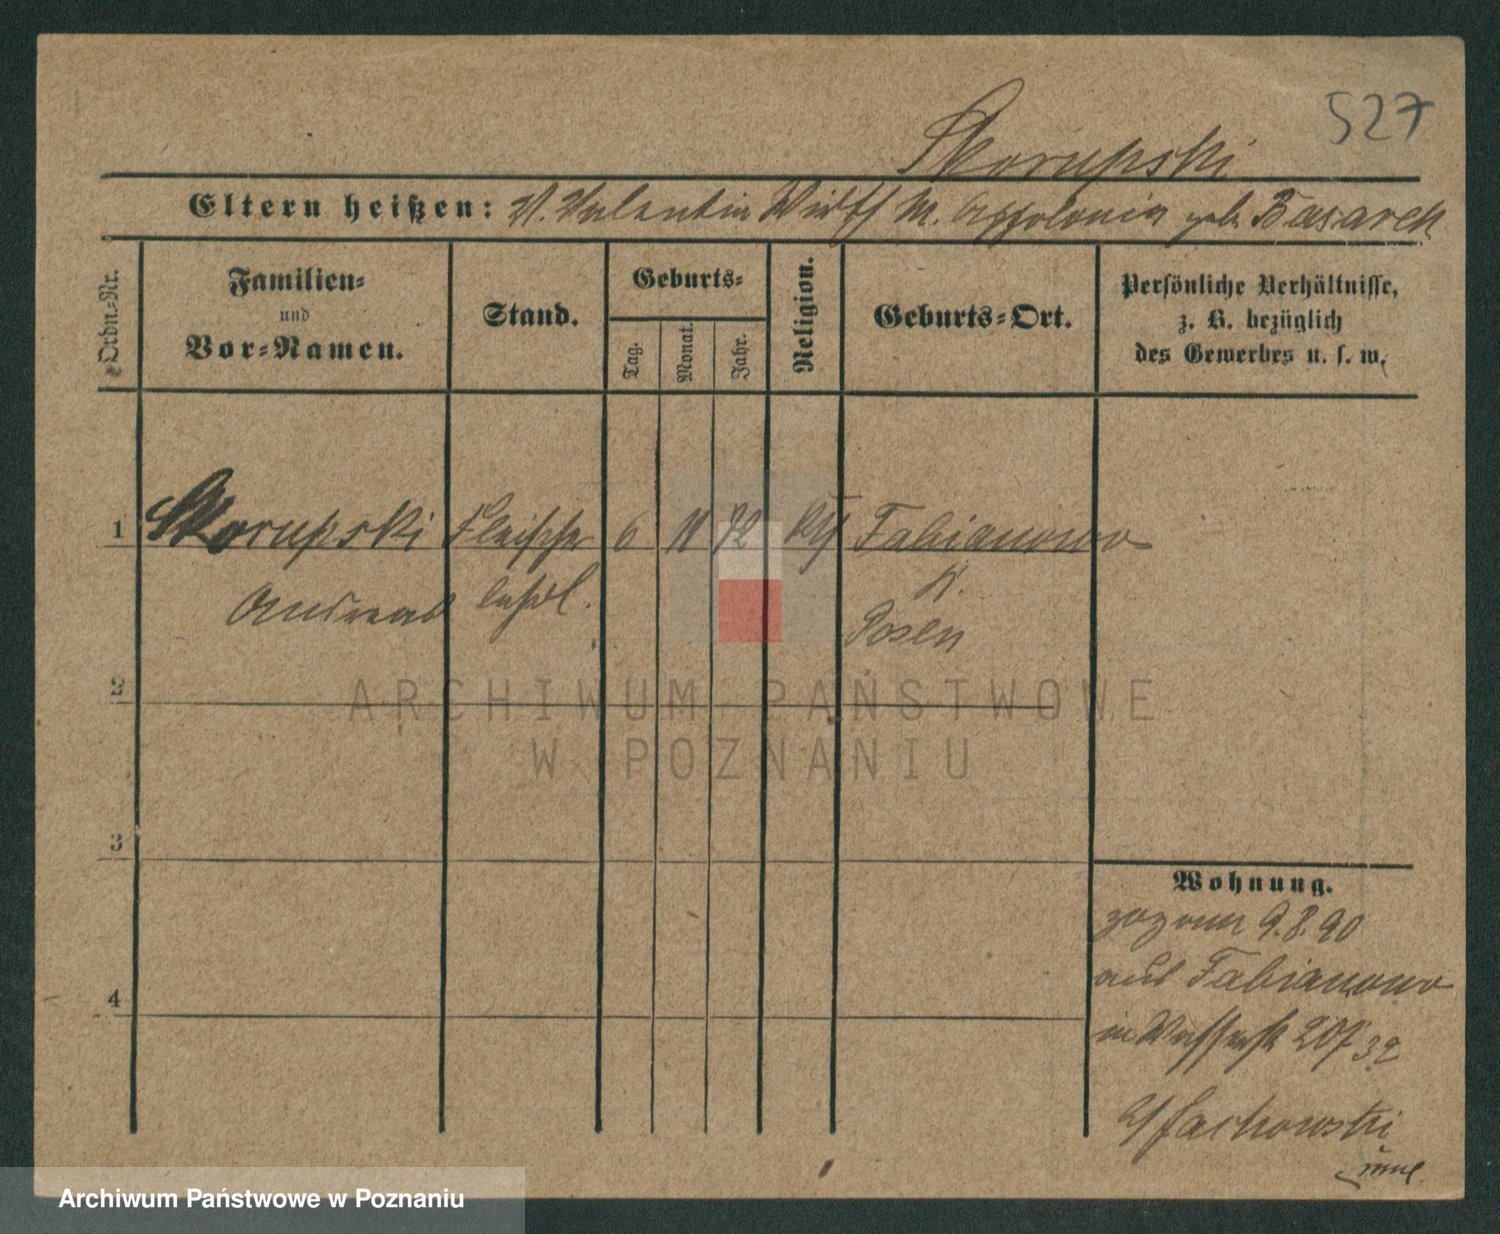 527
Skorupski
Eltern heißen: V. Valentin Wirth M. Appolonia geb. Basarek
Ordn.-Nr.
Familien-
und
Vor-Namen.
Stand.
Geburts-
Tag.
Monat.
Jahr.
Religion.
Geburts-Ort.
Persönliche Verhältnisse,
z. B. bezüglich
des Gewerbes u. s. w.
1 Skorupski Fleischer 6 11 72 kth Fabianowo
Andreas lehrl. K.
Posen
2
3
4
Wohnung.
zog am 9.8.90
aus Fabianowo
in Wasserstr 207
ARCHIWUM PAŃSTWOWE
W POZNANIU
Archiwum Państwowe w Poznaniu